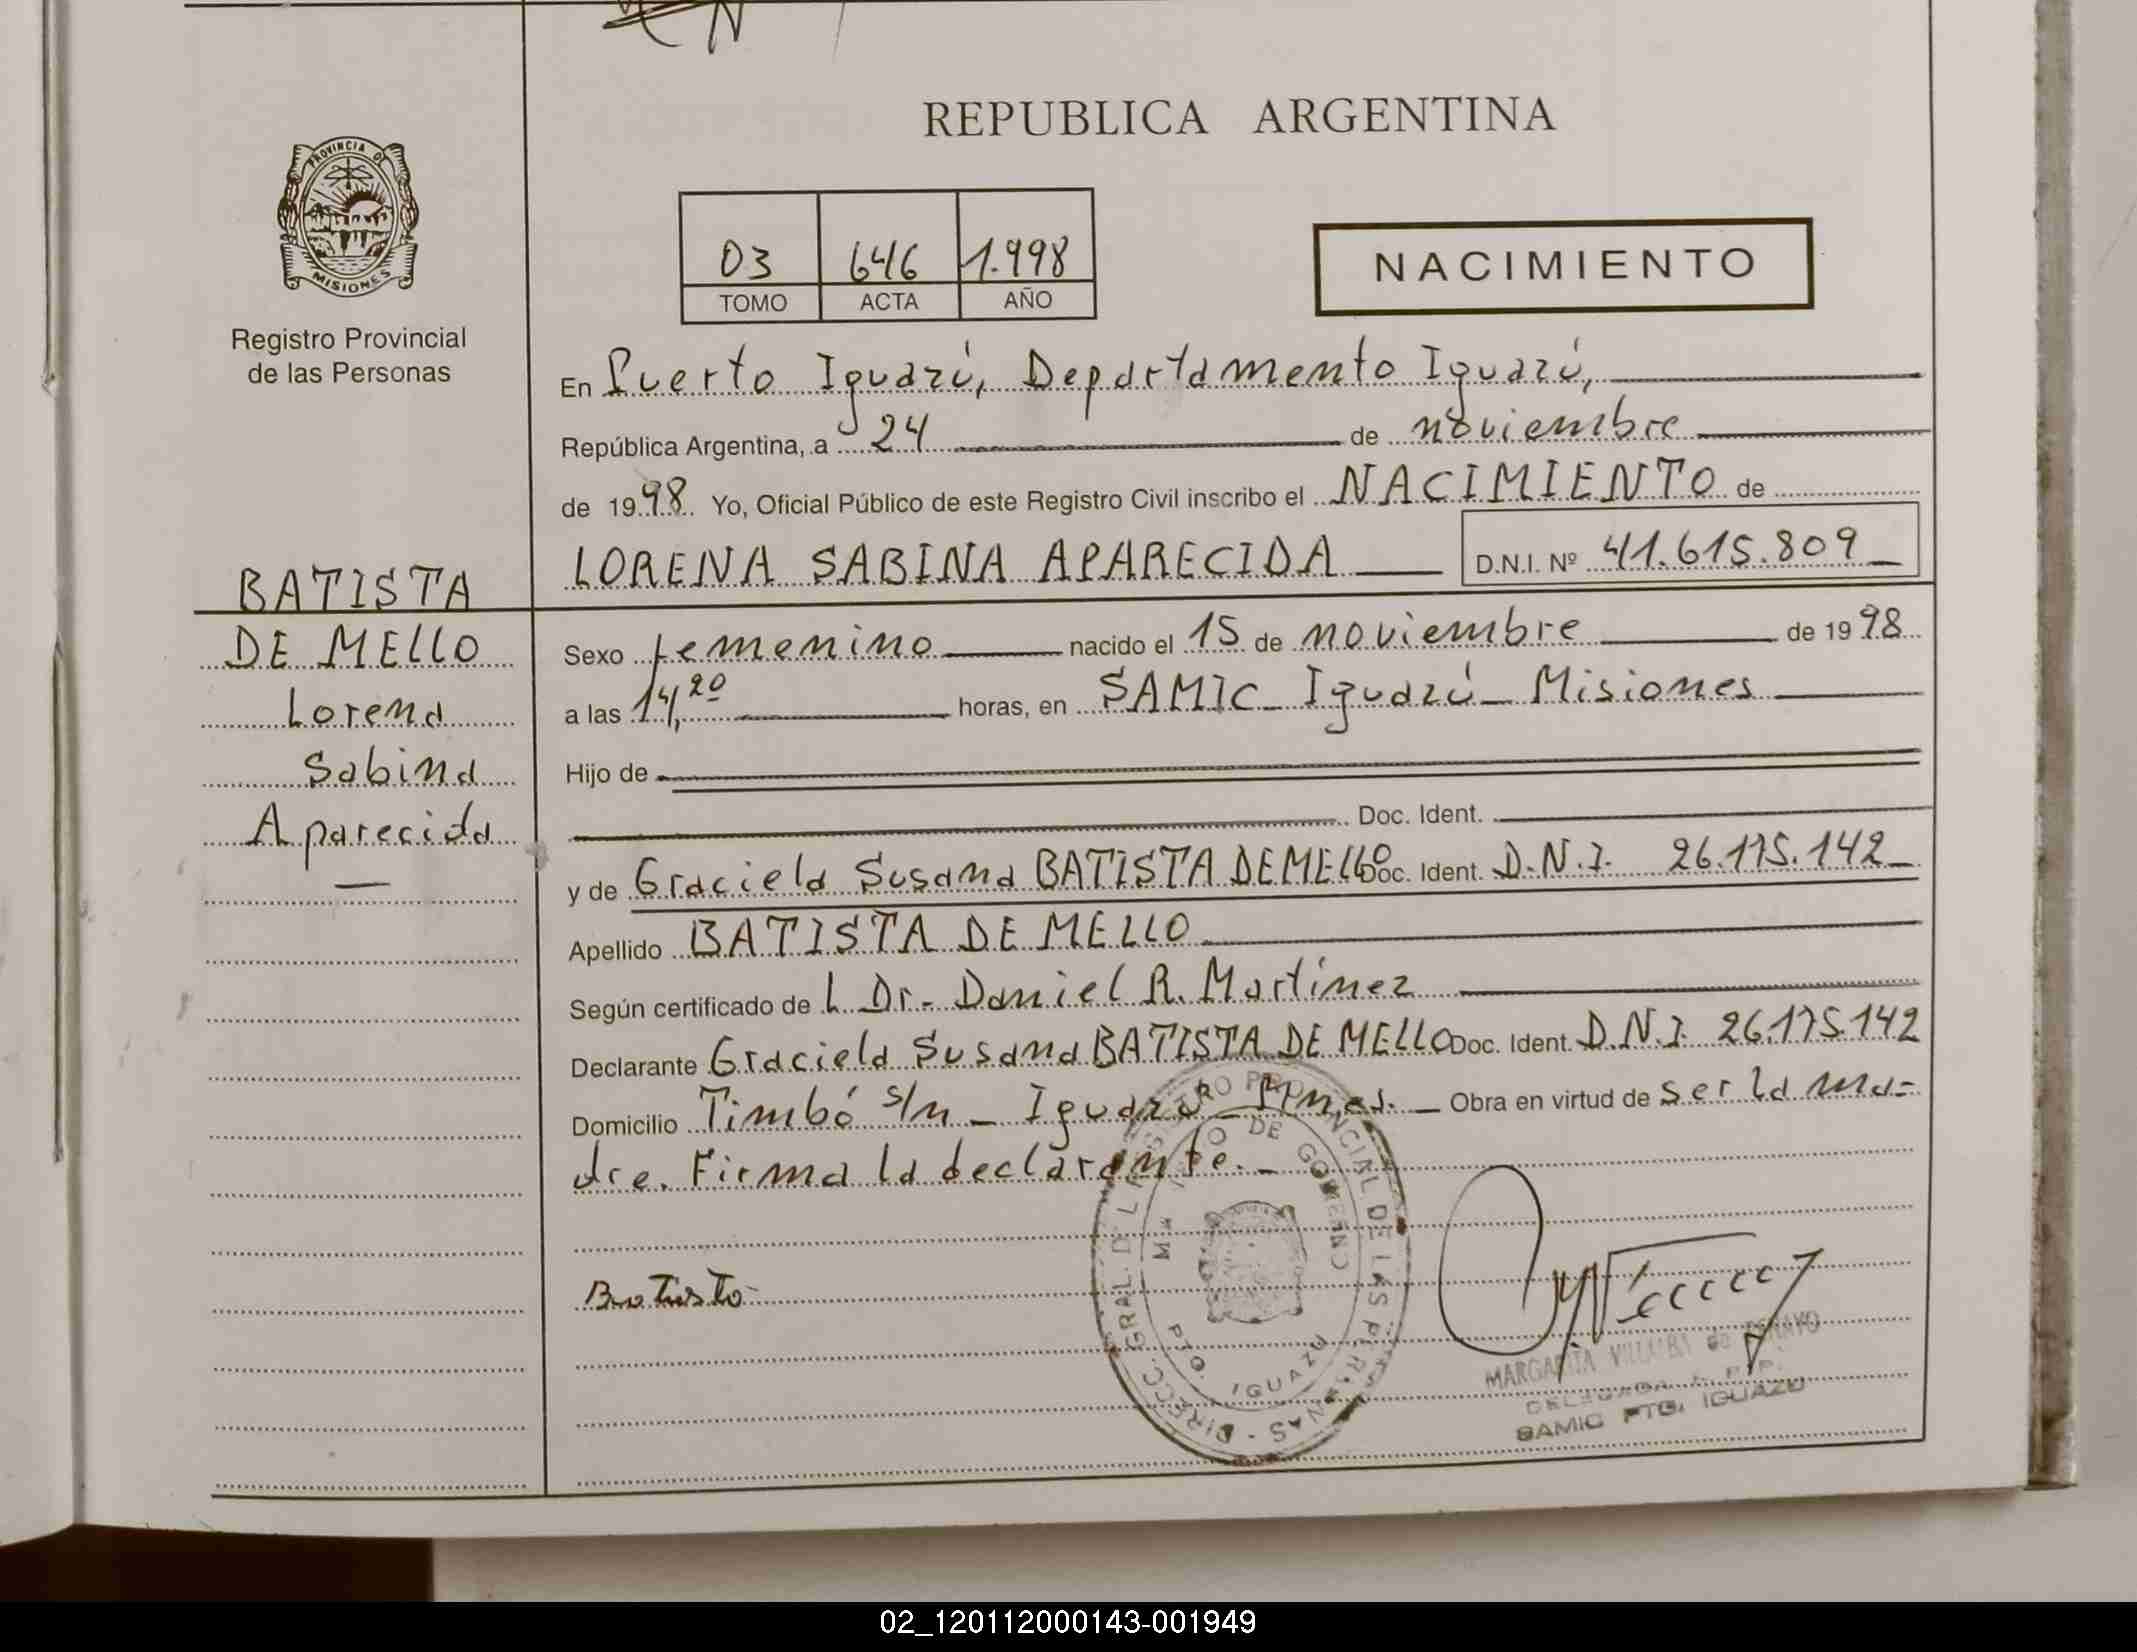 REPUBLICA ARGENTINA
PROVINCIA DE
MISIONES
Registro Provincial
de las Personas
03 646 1.998
TOMO ACTA AÑO
NACIMIENTO
En Puerto Iguazú, Departamento Iguazú,
República Argentina, a 24 de noviembre
de 1998. Yo, Oficial Público de este Registro Civil inscribo el NACIMIENTO de
LORENA SABINA APARECIDA D.N.I. Nº 41.615.809
BATISTA
DE MELLO
Lorena
Sabina
Aparecida
Sexo femenino nacido el 15 de noviembre de 1998
a las 14,20 horas, en SAMIC Iguazú Misiones
Hijo de
Doc. Ident.
y de Graciela Susana BATISTA DE MELLO Doc. Ident. D.N.I. 26.175.142
Apellido BATISTA DE MELLO
Según certificado de L Dr. Daniel R. Martínez
Declarante Graciela Susana BATISTA DE MELLO Doc. Ident. D.N.I. 26.175.142
Domicilio Timbó s/n - Iguazú Mnes. Obra en virtud de ser la ma=
dre. Firma la declarante.
Batista
DIRECC. GRAL. DEL REGISTRO PROVINCIAL DE LAS PERSONAS
DE GOBIERNO
PTO. IGUAZU
MARGARITA VILLALBA de
DELEGADA
SAMIC PTO. IGUAZU
02_120112000143-001949